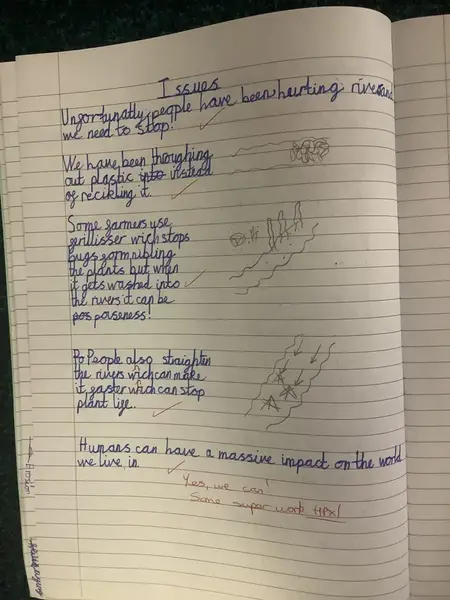 Issues
Unfortunatly, people have been hurting rivers and
we need to stop.
We have been throughing
out plastic into instead
of recikling it.
Some farmers use
ferillisser wich stops
bugs form nibling
the plants but when
it gets washed into
the rivers it can be
pos poiseness!
Po People also straighten
the rivers wich can make
it faster wich can stop
plant life.
Humans can have a massive impact on the world
we live in.
Yes, we can!
Some super work HPx!